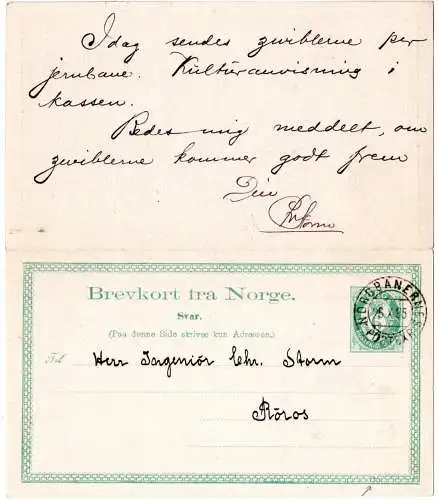 Idag sendes zwiblerne per
jernbane. Kulturanvisning i
kassen.
Bedes mig meddelt, om
zwiblerne kommer godt frem
Din
Brevkort fra Norge.
Svar.
(Paa denne Side skrives kun Adressen.)
Til
Herr Ingeniör Chr. Storm
Röros
NORDBANERNES